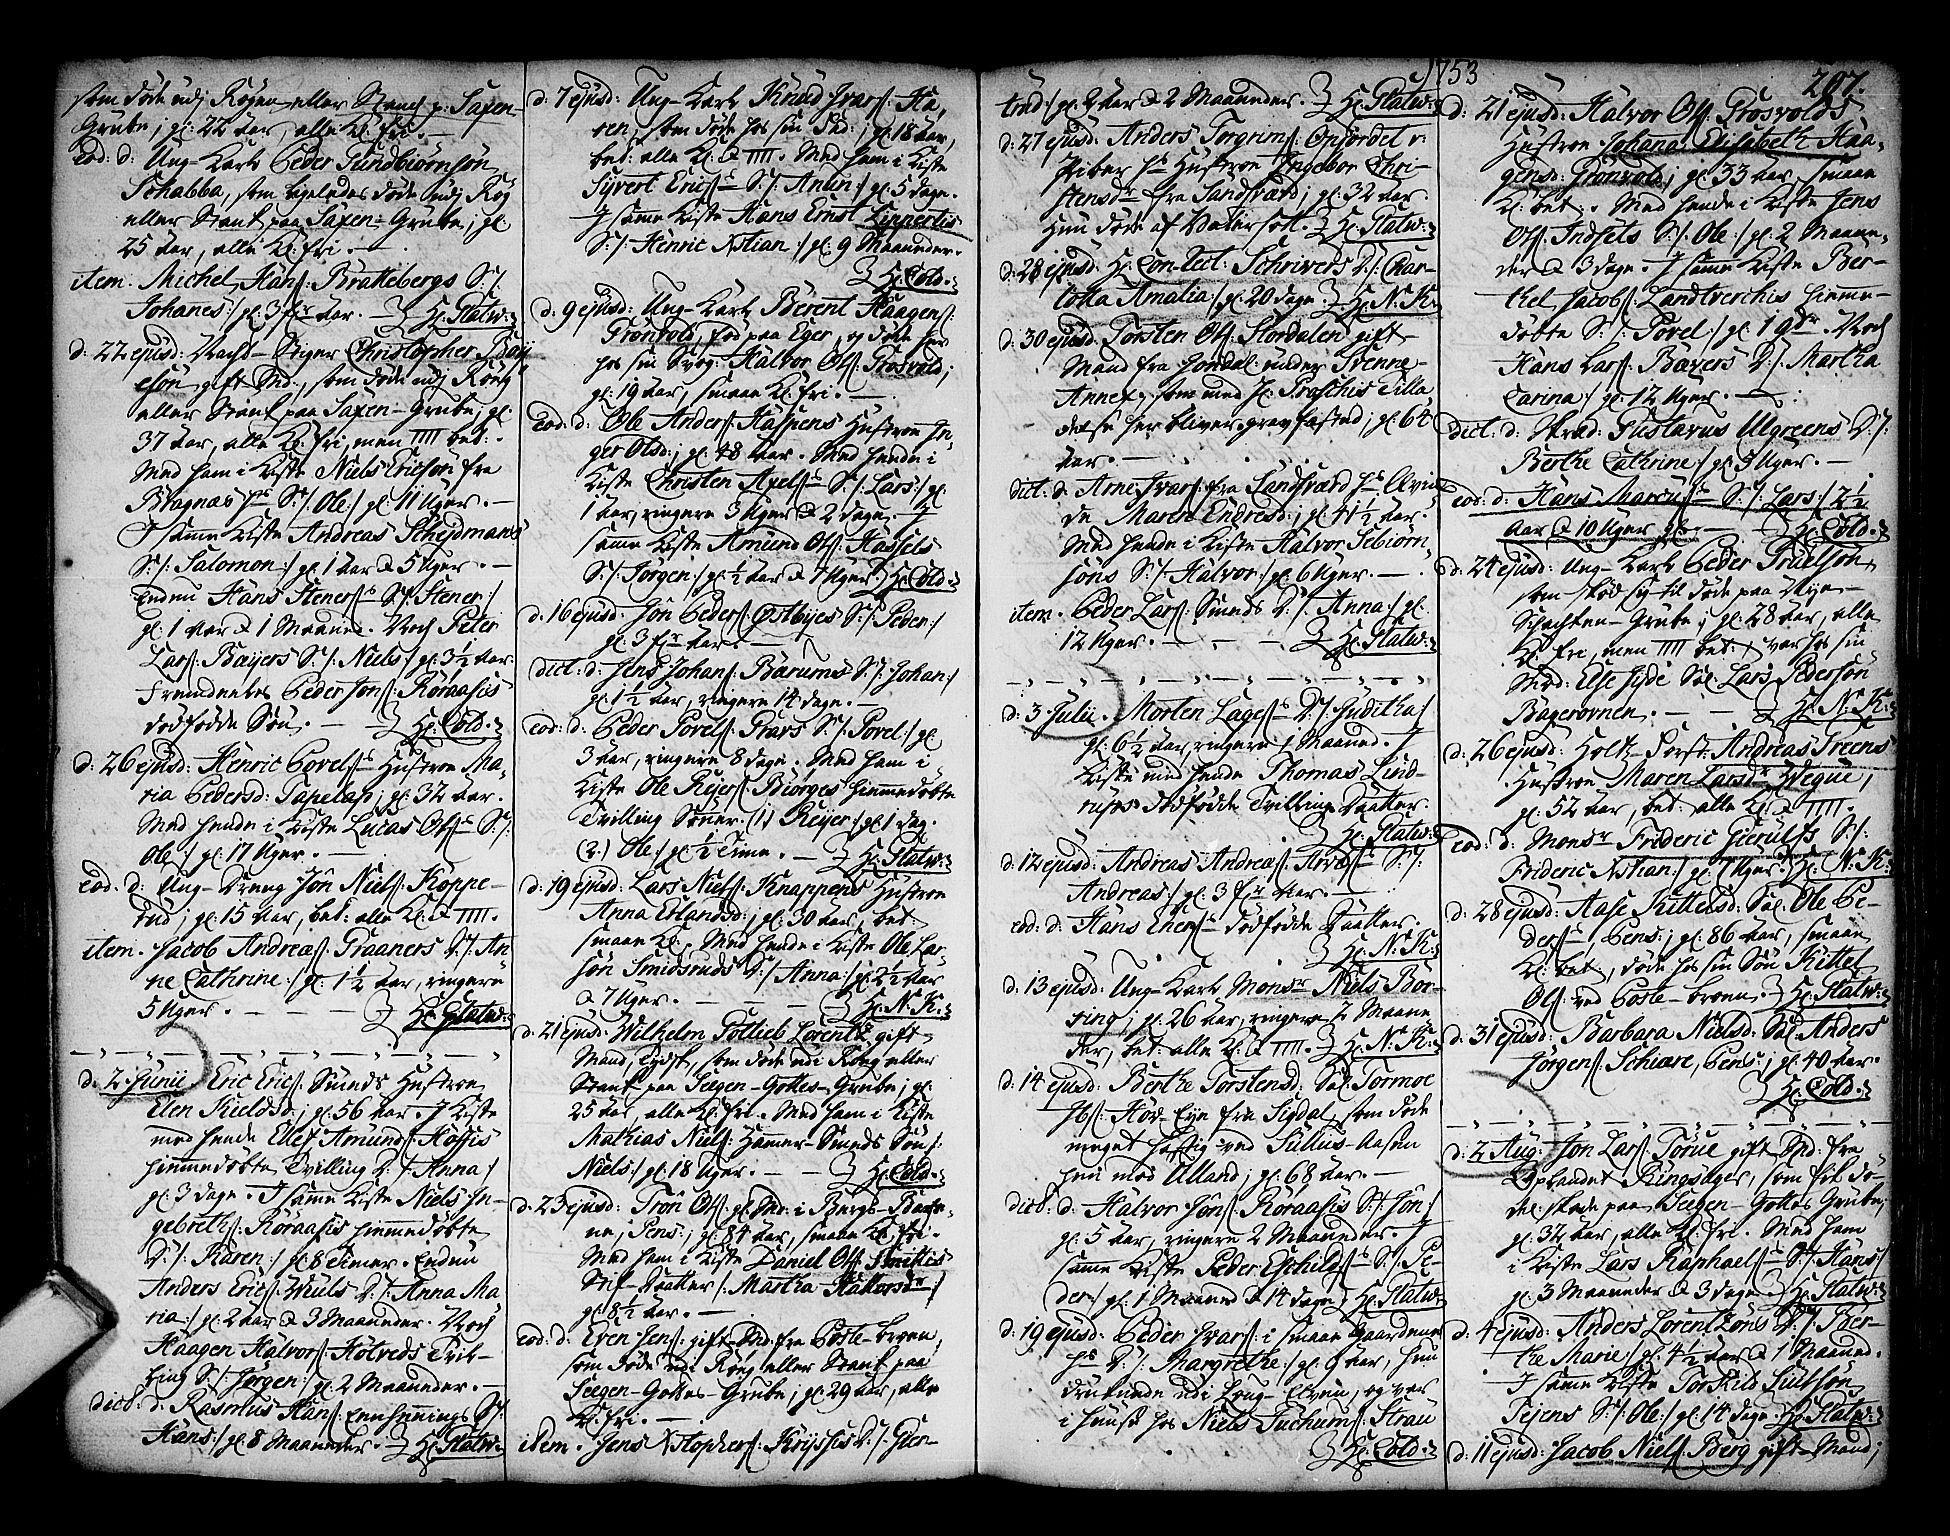 som døde udj Røgen eller Stanck p: Saxen
Grube; gl: 22 Aar, alle Kl: fri. —
eod: d: Ung-Karl Peder Gundbiørnsøn
Schabba, som ligeledes døde udj Røg
eller Stank paa Saxen-Grube; gl:
25 Aar, alle Kl: fri. —
item. Michel Hans: Brattebergs S:/:
Johanes:/ gl: 3 fir: Aar. — Hr: Statw:
d: 22 ejusd: Vacht-Stiger Christopher Baij
esøn gift Md:, som døde udj Røeg
eller Stank paa Saxen-Grube; gl:
37 Aar, alle Kl: fri, men IIII bet:.
Med ham i Kiste Niels Ericsøn fra
Bragnæs hs S:/: Ole:/ gl: 11 Uger. —
I samme Kiste Andreas Schejdmans
S:/: Salomon:/ gl: 1 Aar & 5 Uger. —
Endnu Hans Steners: S:/: Stener:/
gl: 1 Aar & 1 Maaned. Noch Peter
Lars: Bæyers S:/: Niels:/ gl: 3½ Aar.
Fremdeeles Peder Jons: Røraasis
dødfødde Søn. — Hr: Cold:
d: 26 ejusd: Henric Povels: Hustroe Ma-
ria Pedersd: Tapelap; gl: 32 Aar.
Med hende i Kiste Lucas Ols: S:/:
Ole:/ gl: 17 Uger. —
eod: d: Ung-Dreng Jøn Niels: Koppe-
rud; gl: 15 Aar, bet: alle Kl: & IIII.
item. Jacob Andreas: Graaners D:/: An-
ne Cathrine:/ gl: 1½ Aar, ringere
5 Uger. — Hr: Statw:
d: 2 Junii Eric Erics: Smeds Hustroe
Elen Kieldsd:; gl: 56 Aar. I Kiste
med hende Ellef Amunds: Køssis
hiemmedøbte Tvilling D:/: Anna:/
gl: 3 dage. I samme Kiste Niels In-
gebreths: Røraasis hiemmedøbte
D:/: Karen:/ gl: 8 Timer. Endnu
Anders Erics: Weuls D:/: Anna Ma
ria:/ gl: 2 Aar & 3 Maaneder. Noch
Haagen Halvors: Høtveds Tvil-
ling S:/: Jørgen:/ gl: 2 Maaneder. —
dict: d: Rasmus Hans: Ennhennings S:/:
Hans:/ gl: 8 Maaneder. Hr: Statw:
d: 7 ejusd: Ung-Karl Knud Ivars: Ha,
ren, som døde hos sin Fad:; gl: 18 Aar,
bet: alle Kl: & IIII. Med ham i Kiste
Syvert Erics: S:/: Anun:/ gl: 5 dage.
I samme Kiste Hans Ernst Linnertis
S:/: Henric Xstian:/ gl: 9 Maaneder.
Hr: Cold:
d: 9 ejusd: Ung-Karl Berent Haagens:
Grønvold, fød paa Eger, og døde her
hos sin Svog: Halvor Ols: Grosvold;
gl: 19 Aar, smaae Kl: fri. —
eod: d: Ole Anders: Haspens Hustroe In-
ger Olsd:; gl: 48 Aar. Med hende i
Kiste Christen Axels: S:/: Lars:/ gl:
1 Aar, ringere 3 Uger & 2 dage. I
samme Kiste Amund Ols: Hassels
S:/: Jørgen:/ gl: ½ Aar & 7 Uger. Hr: Cold:
d: 16 ejusd: Jon Peders: Østbyes S:/: Peder:/
gl: 3 fir: Aar. —
dict: d: Jens Johans: Barums S:/: Johan:/
gl: 1½ Aar, ringere 14 dage. —
eod: d: Peder Povels: Præs S:/: Povel:/ gl:
3 Aar, ringere 8 dage. Med ham i
Kiste Ole Rejers: Biørges hiemmedøbte
Tvilling Sønner. (1) Reijer:/ gl: 1 dag.
(2.) Ole:/ gl: ½ Time. — Hr: Statw:
d: 19 ejusd: Lars Niels: Knappens Hustroe
Anna Erlandsd:; gl: 30 Aar, bet:
smaae Kl:. Med hende i Kiste Ole Lar-
søn Smidsruds D:/: Anna:/ gl: 2½ Aar
& 7 Uger. — Hr: N. K:
d: 21 ejusd: Wilhelm Gottlieb Lorentz gift
Mand, tydsk, som døde udi Røeg eller
Stank paa Seegen-Gottes-Grube; gl:
25 Aar, alle Kl: fri. Med ham i Kiste
Mathias Niels: Hammer-Smeds Søn:/
Niels:/ gl: 18 Uger. — Hr: Cold:
d: 23 ejusd: Tron Ols: gl: Md: i Bergs-Bakke-
ne, Pens:; gl: 84 Aar, smaae Kl: fri.
Med ham i Kiste Daniel Ols: Smittis
Stif-Daatter:/ Martha Halvorsdr:/
gl: 8½ Aar. —
eod: d: Even Jens: gift Md: fra Poste-broen,
som døde udi Røeg eller Stank paa
Seegen-Gottes-Grube; gl: 29 Aar, alle
Kl: fri. —
item. Jens Xstophers: Kryssis D:/: Ger-
1753
trud:/ gl: 2 Aar & 2 Maaneder. Hr: Statw:
d: 27 ejusd: Anders Torgrims: Opfordet v:
Piber hs Hustroe Ingebor Chri-
stensdr fra Sandsværd; gl: 32 Aar.
Hun døde af Watersott. Hr: Statw:
d: 28 ejusd: Hr: Con-Rect: Schrivers D:/: Char-
lotta Amalia:/ gl: 20 dage. Hr: N. K:
d: 30 ejusd: Torsten Ols: Stordalen gift
Mand fra Jondal under Svenne-
Annex, som med Hr: Proschis Tilla
delse her bliver grav fæsted; gl: 64
Aar. —
dict: d: Arne Ivars: fra Sandsværd hs Qvin
de Maren Endresd:; gl: 41½ Aar.
Med hende i Kiste Halvor Sebiørn-
søns S:/: Halvor:/ gl: 6 Uger. —
item. Peder Lars: Smeds D:/: Anna:/ gl:
12 Uger. — Hr: Statw:
d: 3 Julii. Morten Lages: D:/: Juditha:/
gl: 6½ Aar, ringere 1 Maaned. I
Kiste med hende Thomas Lind-
ruses dødfødde Tvilling Daatter.
Hr: Statw:
d: 12 ejusd: Andreas Andreas: S:/:
Andreas:/ gl: 3 fir: Aar. —
eod: d: Hans Eners: dødfødde Daatter.
Hr: N. K:
d: 13 ejusd: Ung-Karl Monsr Niels Bor-
ring; gl: 26 Aar, ringere 2 Maane
der, bet: alle Kl: & IIII. Hr: N: K:
d: 14 ejusd: Berthe Torstensd: Sal: Tormoe
Ibs: Høv-Eye fra Sigdal, som døde
meget hastig ved Julius-Aasen
hun med Ulland; gl: 68 Aar. —
dict: d: Halvor Jøns: Røraasis S:/: Jøn:/
gl: 5 Aar, ringere 2 Maaneder. I
samme Kiste Peder Eschilds: S:/: Pe-
der:/ gl: 1 Maaned & 14 dage. Hr: Statw:
d: 19 ejusd: Peder Ivars: i smaae Gaardene
hs D:/: Margrethe:/ gl: 9 Aar, hun
druknede udi Loug-Elven, og var
i huuset hos Niels Tuchums: Strau
Hr: Cold:
207.
d: 21 ejusd: Halvor Ols: Grosvolds
Hustroe Johana Elisabeth Haa-
gensd: Grønvold; gl: 33 Aar, smaae
Kl: bet:. Med hende i Kiste Jens
Ols: Indsets S:/: Ole:/ gl: 2 Maane-
der & 3 dage. I samme Kiste Ber-
thel Jacobs: Landtverchis hiemme-
døbte S:/: Povel:/ gl: 1 qdr. Noch
Hans Lars: Bævers D:/: Martha
Carina:/ gl: 12 Uger. —
dict: d: Gustavus Ulgreens D:/:
Berthe Cathrine:/ gl: 5 Uger. —
eod: d: Hans Marcus: S:/: Lars:/ 2½
Aar & 10 Uger gl: — Hr: Cold:
d: 24 ejusd: Ung-Karl Peder Truelsøn,
som skød sig til døde paa Nye-
Schachten-Grube; gl: 28 Aar, alle
Kl: fri, men IIII bet:, var hos sin
Mod: Else Jyde Sal: Lars Pedersøn
Bagerovnen. — Hr: N: K:
d: 26 ejusd: Holtz-Forst: Andreas Treens
Hustroe Maren Larsdr Heque;
gl: 52 Aar, bet: alle Kl: & IIII.
eod: d: Monsr Frideric Gierulfs S:/:
Frideric Xstian:/ gl: 7 Uger. Hr: N. K:
d: 28 ejusd: Aase Kittelsd: Sal: Ole Pe-
ders:, Pens:; gl: 86 Aar, smaae
Kl: bet:, døde hos sin Søn Kittel
Ols: ved Poste-broen. Hr: Statw:
d: 31 ejusd: Barbara Nielsd: Sal: Anders
Jørgens: Schiære, Pens:; gl: 40 Aar.
Hr: Cold:
d: 2 Aug: Jon Lars: Torue gift Md: fra
Oplandet Ringsager, som fik dø-
del skade paa Seegen-Gottes Grube;
gl: 32 Aar, alle Kl: fri. Med ham
i Kiste Lars Raphaels: S:/: Hans:/
gl: 3 Maaneder & 3 dage. Hr: Statw:
d: 4 ejusd: Anders Lorentzøns D:/: Ber-
the Marie:/ gl: 4½ Aar & 1 Maaned.
I samme Kiste Torkild Luthsøn
Tejens S:/: Ole:/ gl: 14 dage. Hr: Statw:
d: 11 ejusd: Jacob Niels: Berg gifte Mand;